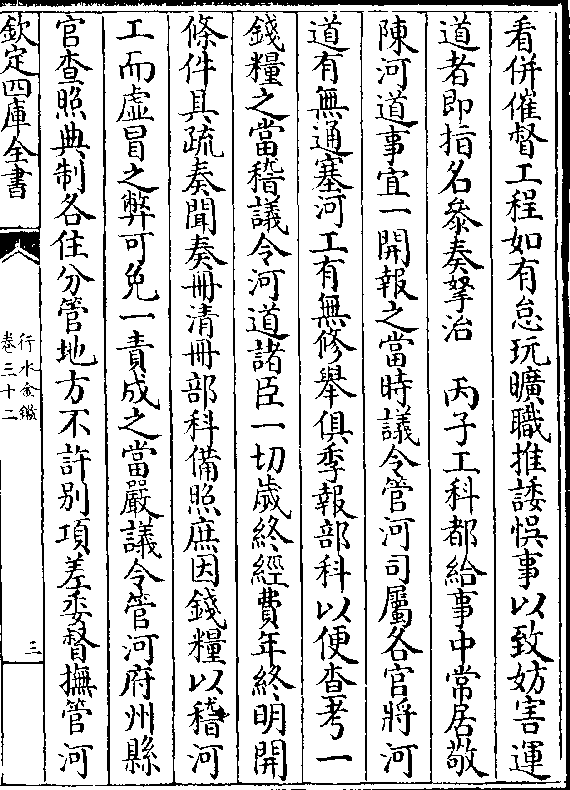 看併催督工程如有怠玩曠職推諉悞事以致妨害運
道者即指名叅奏拏治　丙子工科都給事中常居敬
陳河道事宜一開報之當時議令管河司屬各官將河
道有無通塞河工有無修舉俱季報部科以便查考一
錢糧之當稽議令河道諸臣一切歲終經費年終明開
條件具疏奏聞奏冊清冊部科備照庶因錢糧以稽河
工而虛冒之弊可免一責成之當嚴議令管河府州縣
官查照典制各住分管地方不許别項差委督撫管河
欽定四庫全書
行水金鑑
卷三十二
三